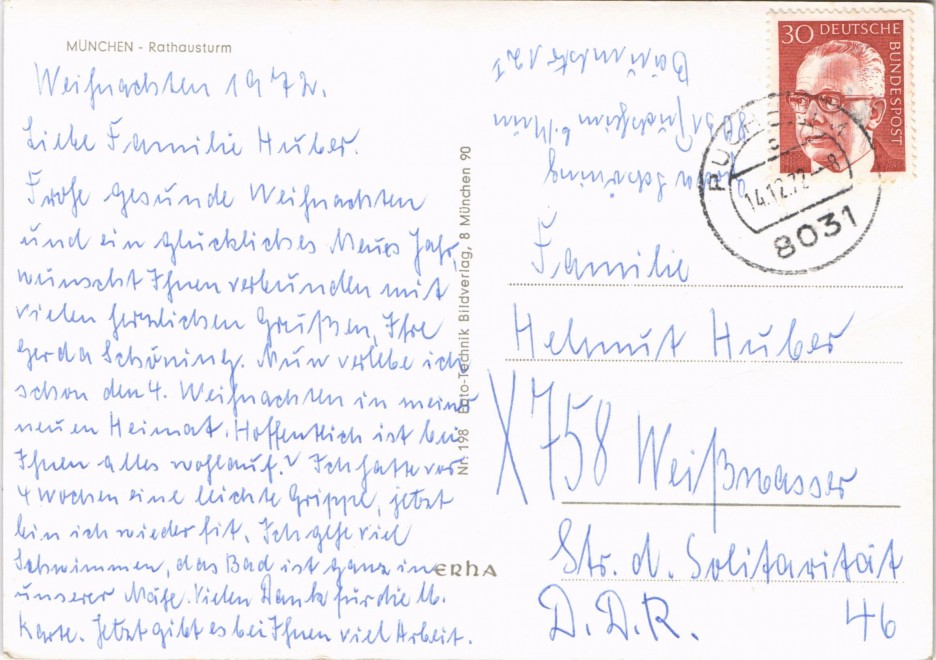 MÜNCHEN - Rathausturm
Weihnachten 1972.
Liebe Familie Huber.
Frohe gesunde Weihnachten
und ein glückliches Neues Jahr,
wünscht Ihnen verbunden mit
vielen herzlichen Grüßen, Ihre
Gerda Schöning. Nun verlebe ich
schon den 4. Weihnachten in meiner
neuen Heimat. Hoffentlich ist bei
Ihnen alles wohlauf? Ich hatte vor
4 Wochen eine leichte Grippe, jetzt
bin ich wieder fit. Ich gehe viel
Schwimmen, das Bad ist ganz in
unserer Nähe. Vielen Dank für die lb.
Karte. Jetzt gibt es bei Ihnen viel Arbeit.
Nr. 198 Foto-Technik Bildverlag, 8 München 90
ERHA
30 DEUTSCHE
BUNDESPOST
14.12.72-8
8031
Schöning
8031
12 I
Familie
Helmut Huber
X 758 Weißwasser
Str. d. Solitarität
D.D.R. 46